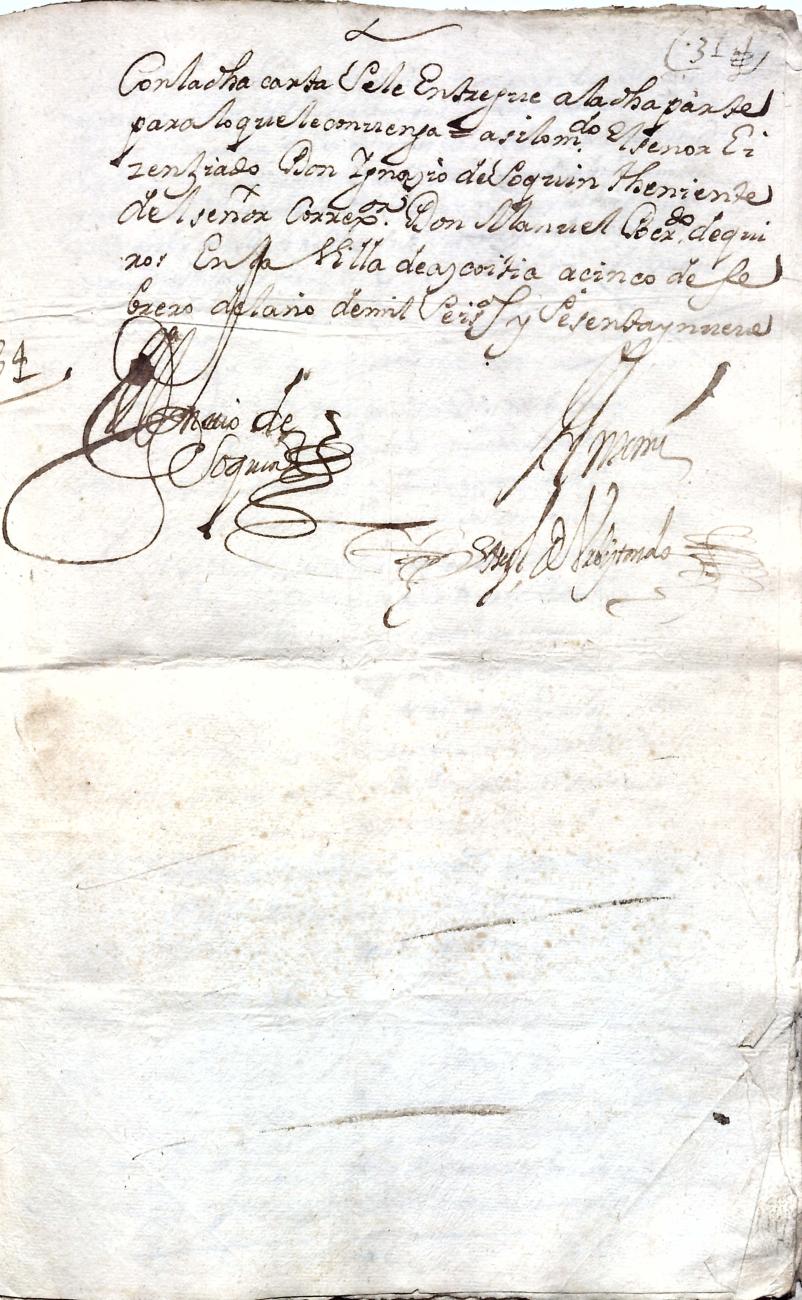 (314)
Con la dha carta se le Entregue a la dha parte
para lo que le convenga = asi lo m.do El señor Li
zenziado Don Ygnazio de Soquin theniente
del señor Correx.or Don Manuel Ber.do de qui
ros En la Villa de azcoitia a cinco de fe
brero del año de mil Seis.os y Sesenta y nueve
34
de
Soquin
Ante mi